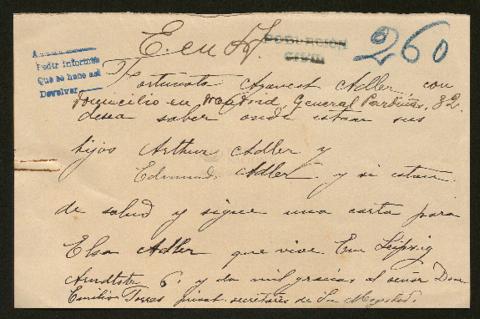 POBLACIÓN
CIVIL
260
A
Pedir informes
Que se hace así
Devolver
Fortunata Adler, con
domicilio en Madrid, General Pardiñas, 82.
desea saber onde estan sus
hijos Arthur Adler y
Edmund Adler y si estan
de salud y sigue una carta para
Elsa Adler que vive. Em Leipzig
Arndtstr 6. y da mil gracias al señor Don
Emilio Torres privat. secretares de Su Magestad.